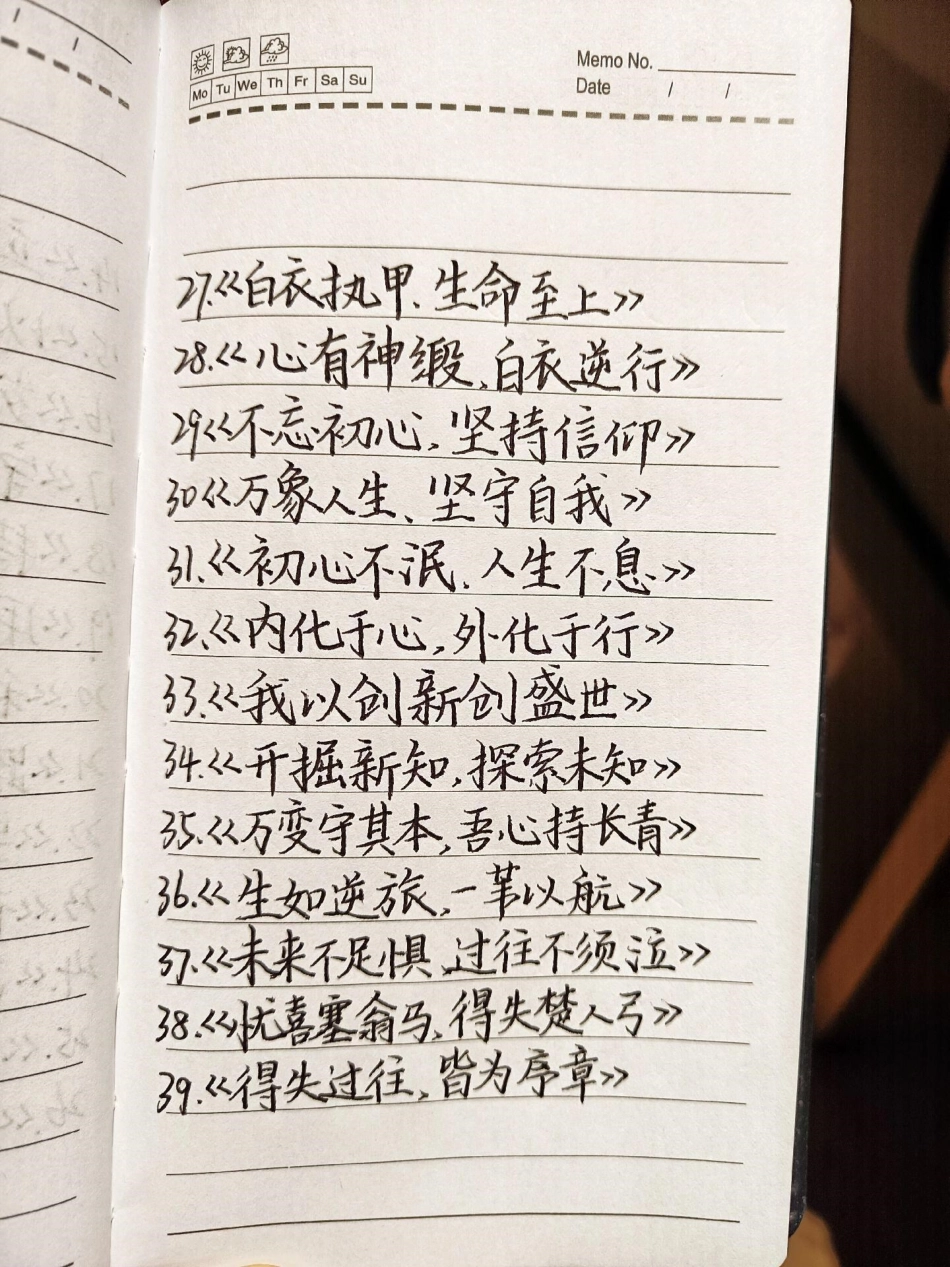 Mo Tu We Th Fr Sa Su
Memo No.
Date / /
27.《白衣执甲、生命至上》
28.《心有神缎、白衣逆行》
29《不忘初心,坚持信仰》
30《万象人生、坚守自我》
31.《初心不泯、人生不息》
32.《内化于心,外化于行》
33.《我以创新创盛世》
34.《开掘新知,探索未知》
35.《万变守其本,吾心持长青》
36.《生如逆旅,一苇以航》
37.《未来不足惧,过往不须泣》
38.《忧喜塞翁马,得失楚人弓》
39.《得失过往,皆为序章》